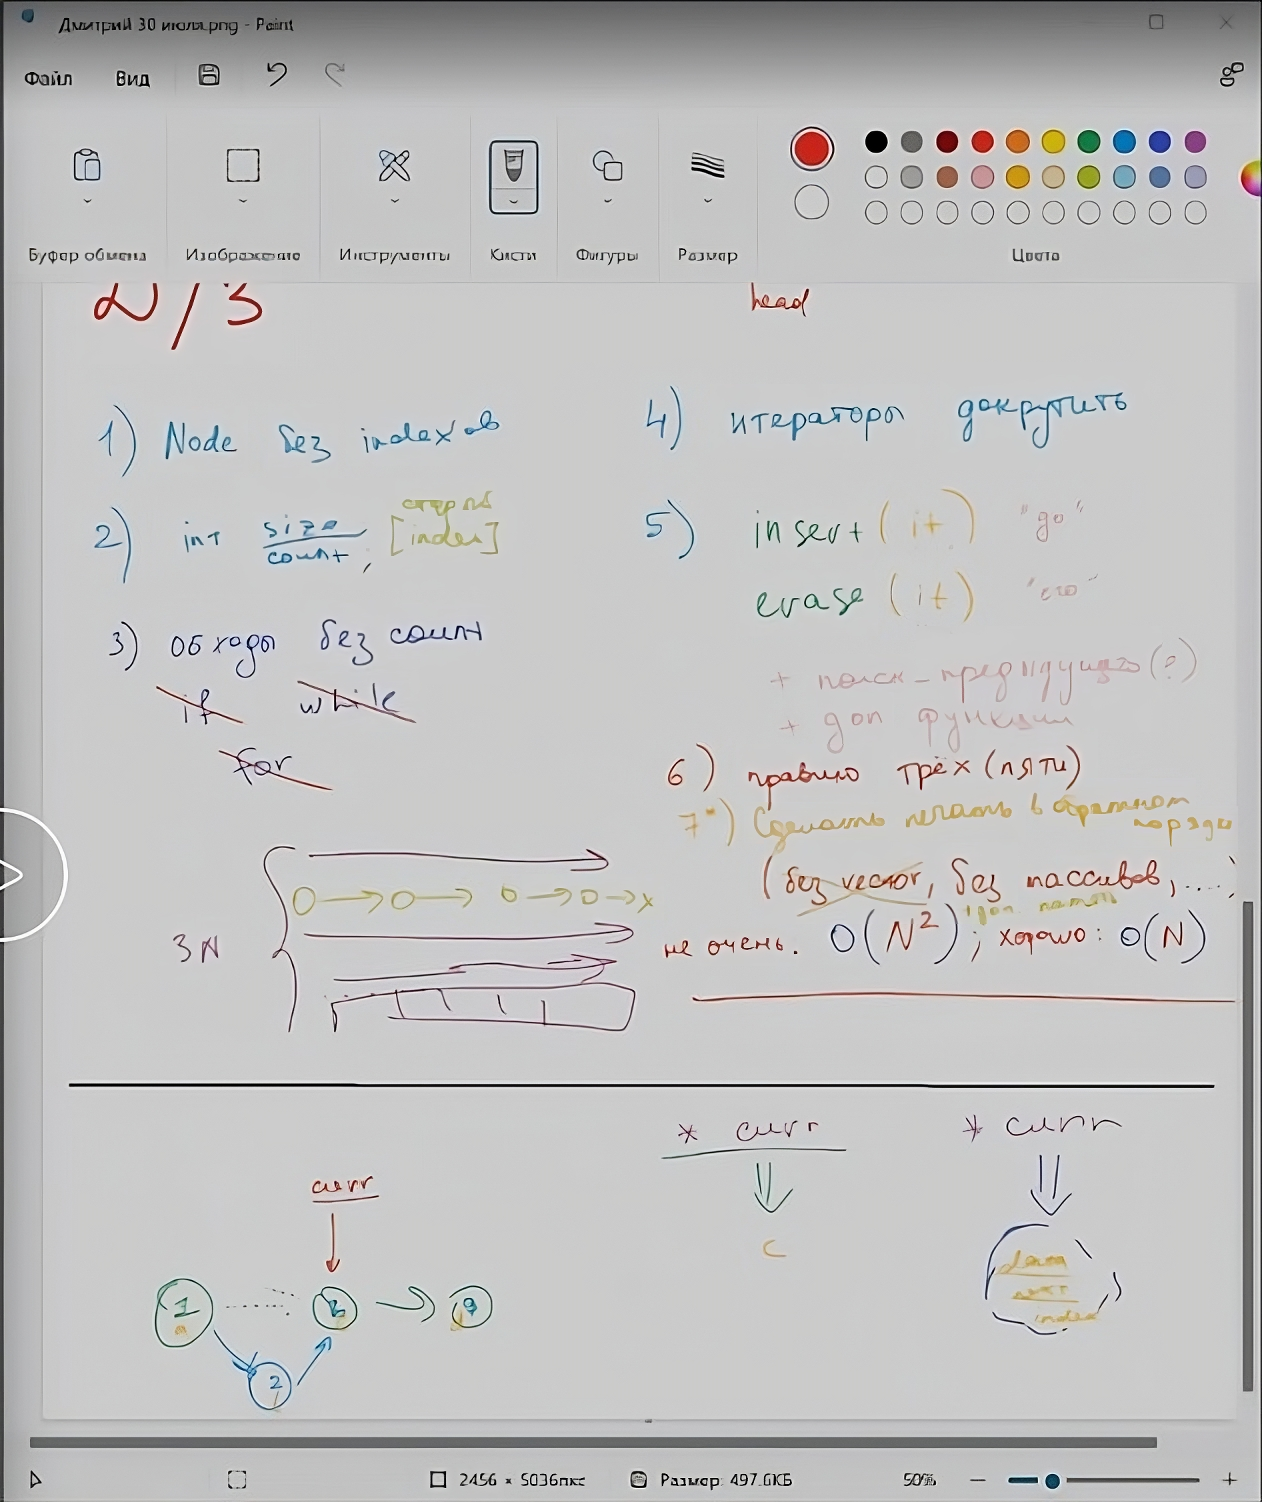 Дмитрий 30 июля.png - Paint
Файл Вид
Буфер обмена Изображение Инструменты Кисти Фигуры Размер Цвета
N/3
head
1) Node без indexов
2) int size/count; [index]
стереть
3) обходы без count
if while
for
3N
4) итераторы докрутить
5) insert (it) "до"
erase (it) "его"
+ поиск-предыдущего(?)
+ доп функции
6) правило трёх (пяти)
7*) Сделать печать в обратном
порядке
(без vector, без массивов, ....)
! доп. память
не очень. O(N²); хорошо: O(N)
* curr
* curr
curr
c
data
next
index
1
3
9
2
2456 × 5036пкс Размер: 497.6КБ 50%